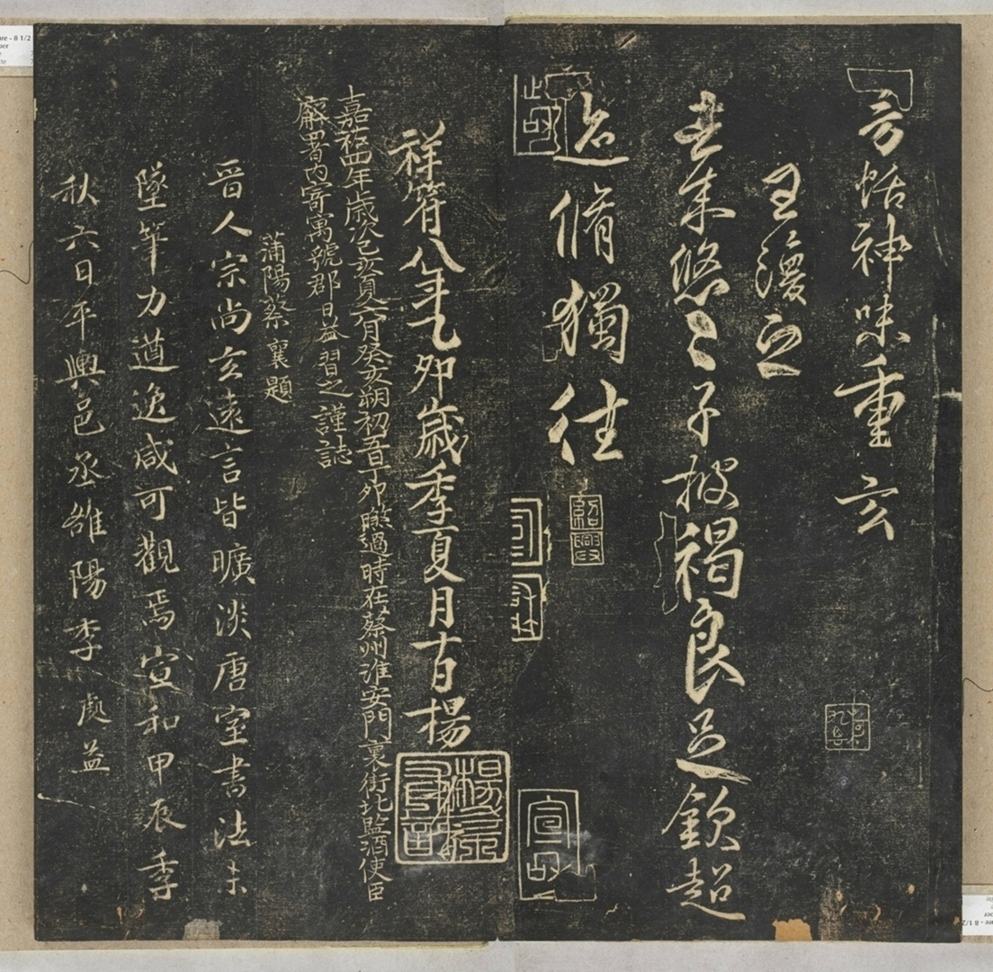 恬神味重玄
王渙之
去来悠〻子披褐良足欽超
迹脩獨往
紹興
祥符八年乙卯歲季夏月十日楊
嘉祐四年歲次己亥夏六月癸亥朔初五日丁卯過時在蔡州淮安門裏街北監酒使臣
廨署内寄寓號郡日益習之謹誌
蒲陽蔡襄題
晋人宗尚玄遠言皆曠淡唐室書法未
墜筆力遒逸咸可觀焉宣和甲辰季
秋六日平輿邑丞雒陽李處益